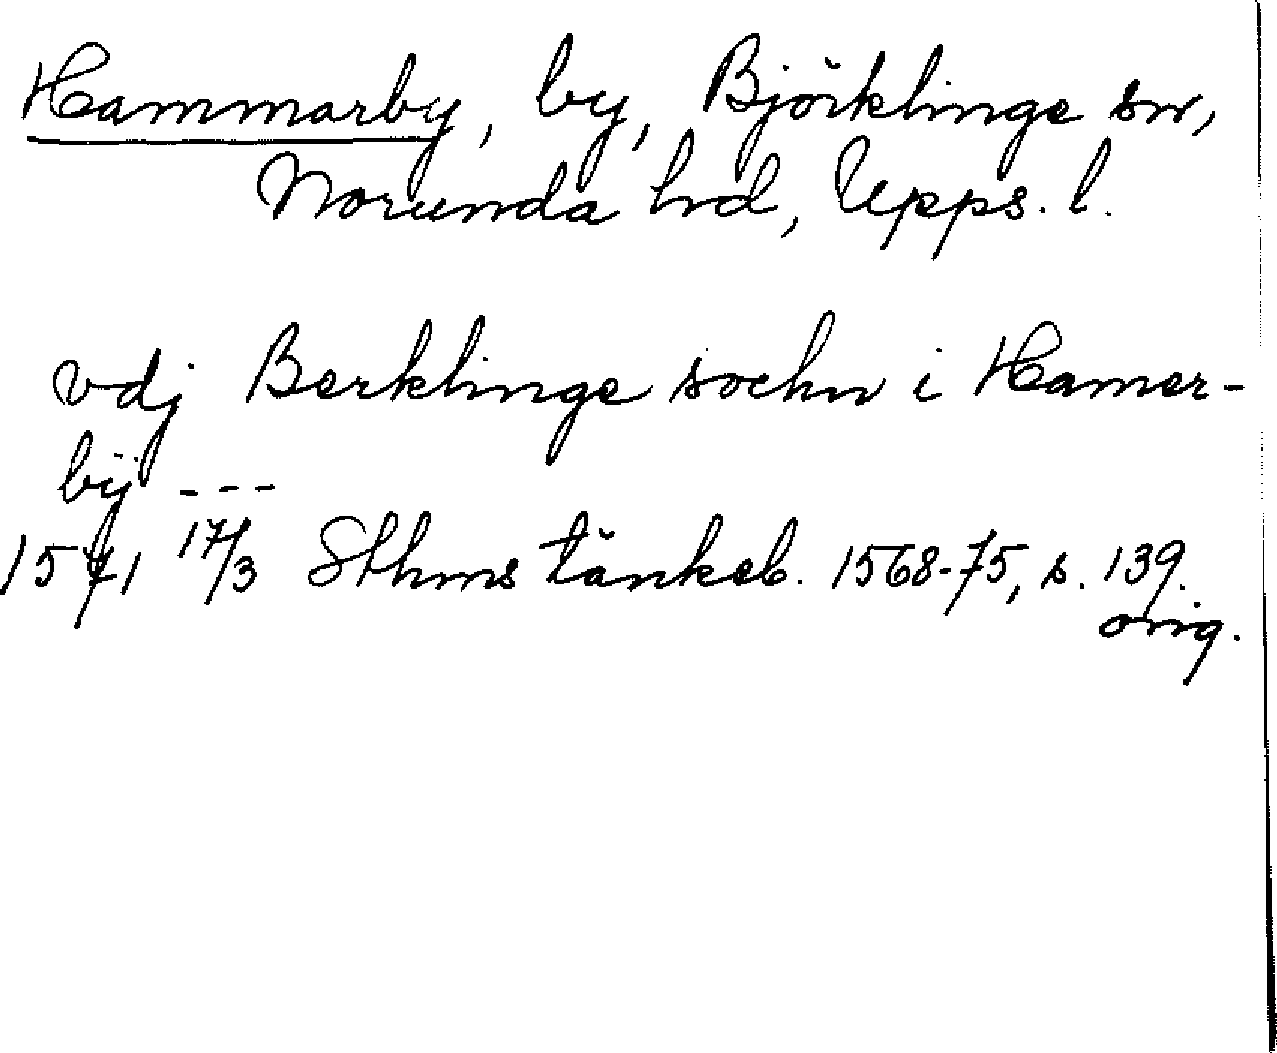 Hammarby, by, Björklinge sn,
Norunda hd, Upps. l.
vdj Berklinge sochn i Hamer-
bÿ ---
1571 17/3 Sthms tänkeb. 1568-75, s. 139.
orig.